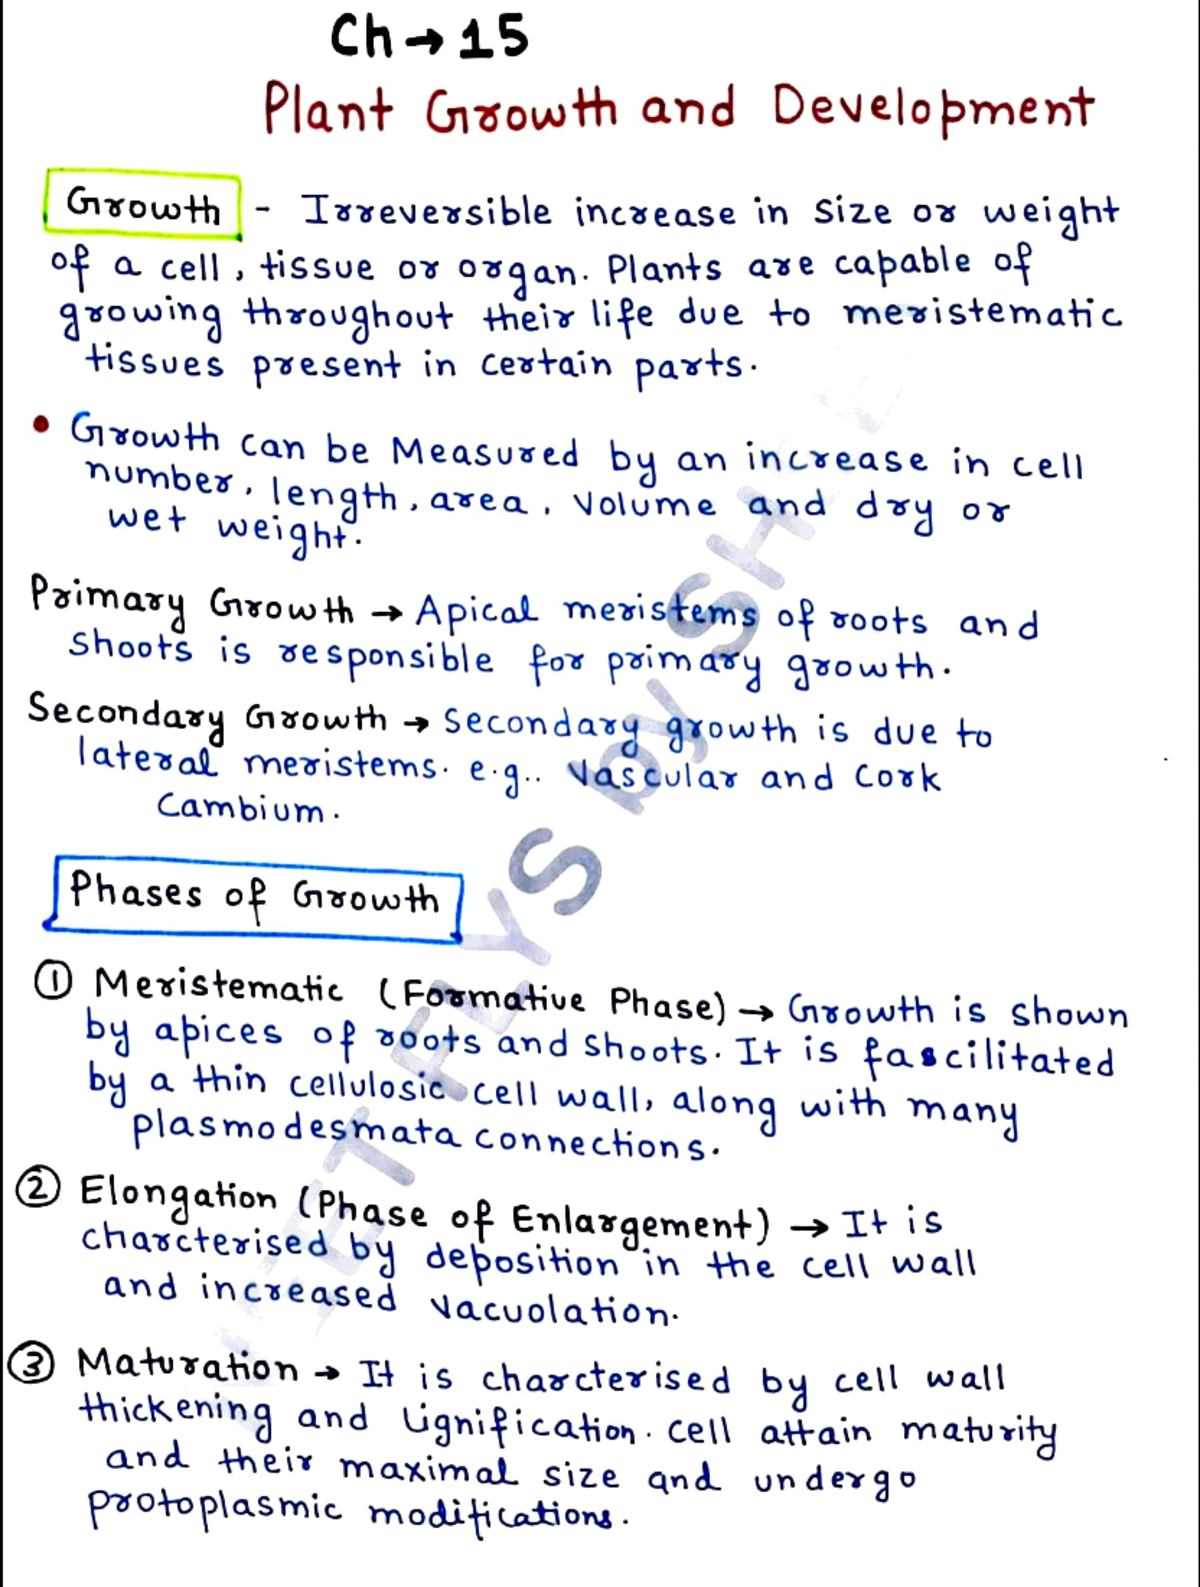 Ch → 15
Plant Growth and Development
Growth - Irreversible increase in size or weight
of a cell, tissue or organ. Plants are capable of
growing throughout their life due to meristematic
tissues present in certain parts.
• Growth can be Measured by an increase in cell
number, length, area, volume and dry or
wet weight.
Primary Growth → Apical meristems of roots and
shoots is responsible for primary growth.
Secondary Growth → Secondary growth is due to
lateral meristems. e.g.. Vascular and Cork
Cambium.
Phases of Growth
① Meristematic (Formative Phase) → Growth is shown
by apices of roots and shoots. It is fascilitated
by a thin cellulosic cell wall, along with many
plasmodesmata connections.
② Elongation (Phase of Enlargement) → It is
charcterised by deposition in the cell wall
and increased vacuolation.
③ Maturation → It is charcterised by cell wall
thickening and Lignification. Cell attain maturity
and their maximal size and undergo
protoplasmic modifications.